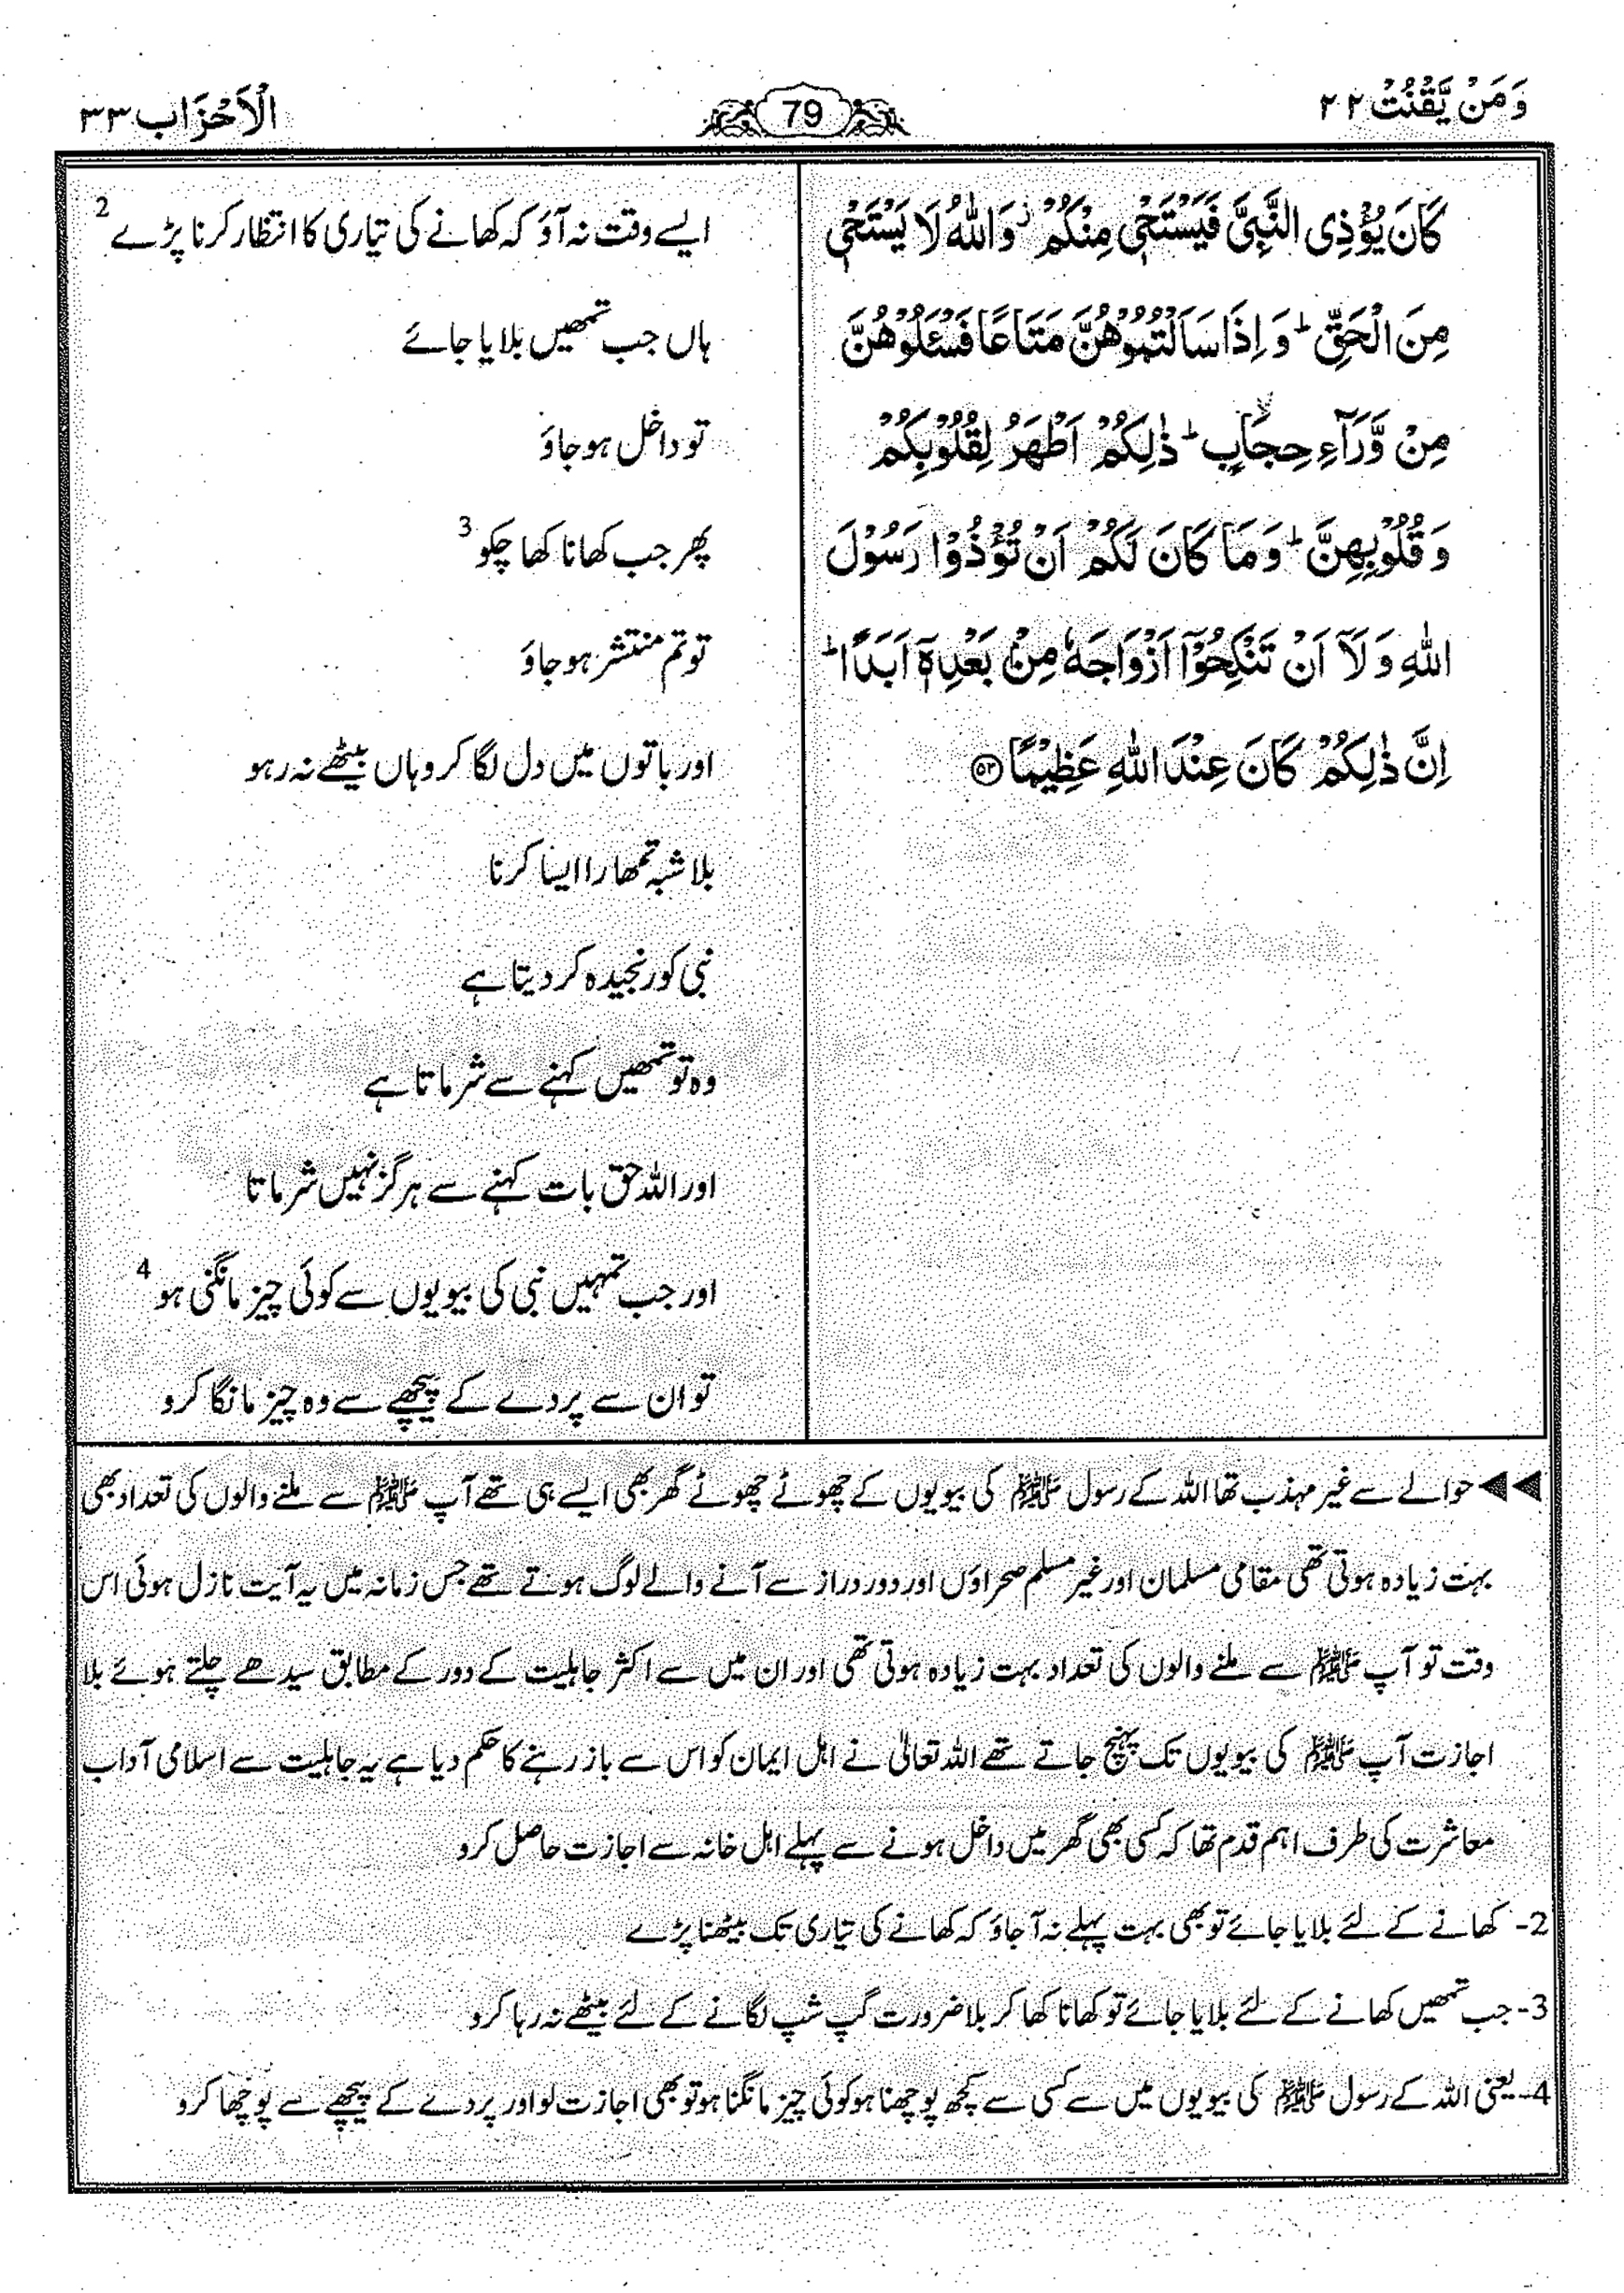 وَمَنْ يَّقْنُتْ ٢٢
79
الْاَحْزَاب ٣٣
كَانَ يُؤْذِى النَّبِيَّ فَيَسْتَحْيٖ مِنْكُمْ ۫ وَاللّٰهُ لَا يَسْتَحْيٖ
مِنَ الْحَقِّ ؕ وَ اِذَا سَاَلْتُمُوْهُنَّ مَتَاعًا فَسْـَٔلُوْهُنَّ
مِنْ وَّرَآءِ حِجَابٍ ؕ ذٰلِكُمْ اَطْهَرُ لِقُلُوْبِكُمْ
وَ قُلُوْبِهِنَّ ؕ وَ مَا كَانَ لَكُمْ اَنْ تُؤْذُوْا رَسُوْلَ
اللّٰهِ وَ لَآ اَنْ تَنْكِحُوْٓا اَزْوَاجَهٗ مِنْۢ بَعْدِهٖٓ اَبَدًا ؕ
اِنَّ ذٰلِكُمْ كَانَ عِنْدَ اللّٰهِ عَظِيْمًا ﴿۵۳﴾
ایسے وقت نہ آؤ کہ کھانے کی تیاری کا انتظار کرنا پڑے 2
ہاں جب تمھیں بلایا جائے
تو داخل ہو جاؤ
پھر جب کھانا کھا چکو 3
تو تم منتشر ہو جاؤ
اور باتوں میں دل لگا کر وہاں بیٹھے نہ رہو
بلا شبہ تمھارا ایسا کرنا
نبی کو رنجیدہ کر دیتا ہے
وہ تو تمھیں کہنے سے شرماتا ہے
اور اللہ حق بات کہنے سے ہرگز نہیں شرماتا
اور جب تمہیں نبی کی بیویوں سے کوئی چیز مانگنی ہو 4
تو ان سے پردے کے پیچھے سے وہ چیز مانگا کرو
◄◄ حوالے سے غیر مہذب تھا اللہ کے رسول ﷺ کی بیویوں کے چھوٹے چھوٹے گھر بھی ایسے ہی تھے آپ ﷺ سے ملنے والوں کی تعداد بھی
بہت زیادہ ہوتی تھی مقامی مسلمان اور غیر مسلم صحراؤں اور دور دراز سے آنے والے لوگ ہوتے تھے جس زمانہ میں یہ آیت نازل ہوئی اس
وقت تو آپ ﷺ سے ملنے والوں کی تعداد بہت زیادہ ہوتی تھی اور ان میں سے اکثر جاہلیت کے دور کے مطابق سیدھے چلتے ہوئے بلا
اجازت آپ ﷺ کی بیویوں تک پہنچ جاتے تھے اللہ تعالیٰ نے اہل ایمان کو اس سے باز رہنے کا حکم دیا ہے یہ جاہلیت سے اسلامی آداب
معاشرت کی طرف اہم قدم تھا کہ کسی بھی گھر میں داخل ہونے سے پہلے اہل خانہ سے اجازت حاصل کرو
2- کھانے کے لئے بلایا جائے تو بھی بہت پہلے نہ آ جاؤ کہ کھانے کی تیاری تک بیٹھنا پڑے
3- جب تمھیں کھانے کے لئے بلایا جائے تو کھانا کھا کر بلا ضرورت گپ شپ لگانے کے لئے بیٹھے نہ رہا کرو
4- یعنی اللہ کے رسول ﷺ کی بیویوں میں سے کسی سے کچھ پوچھنا ہو کوئی چیز مانگنا ہو تو بھی اجازت لو اور پردے کے پیچھے سے پوچھا کرو